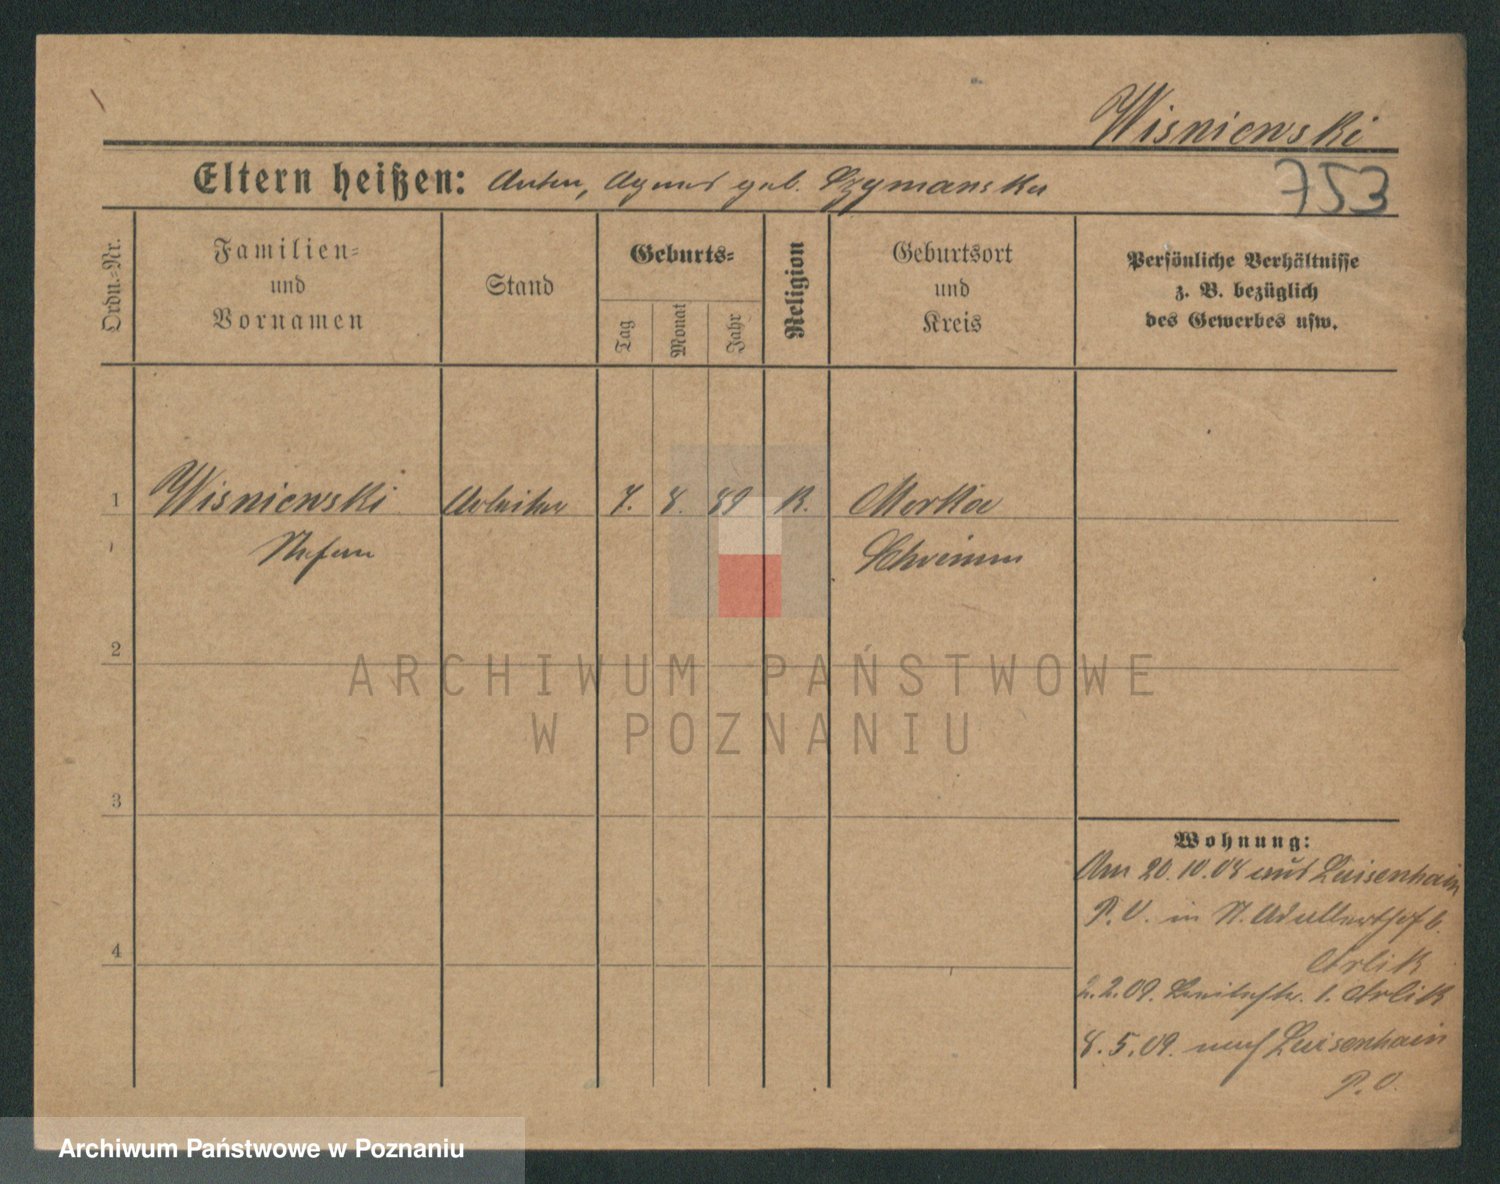 Wisniewski
Eltern heißen: Anton, Agnes geb. Szymanska
753
Ordn.=Nr.
Familien=
und
Vornamen
Stand
Geburts=
Tag
Monat
Jahr
Religion
Geburtsort
und
Kreis
Persönliche Verhältnisse
z. B. bezüglich
des Gewerbes usw.
1 Wisniewski Arbeiter 7. 8. 89 K.
Stefan Schrimm
2
3
4
Wohnung:
Am 20.10.08 aus Luisenhain
P.O. in St. Adalberthof b.
Orlik
2.2.09. b. Orlik
8.5.09. nach Luisenhain
P.O.
ARCHIWUM PAŃSTWOWE
W POZNANIU
Archiwum Państwowe w Poznaniu